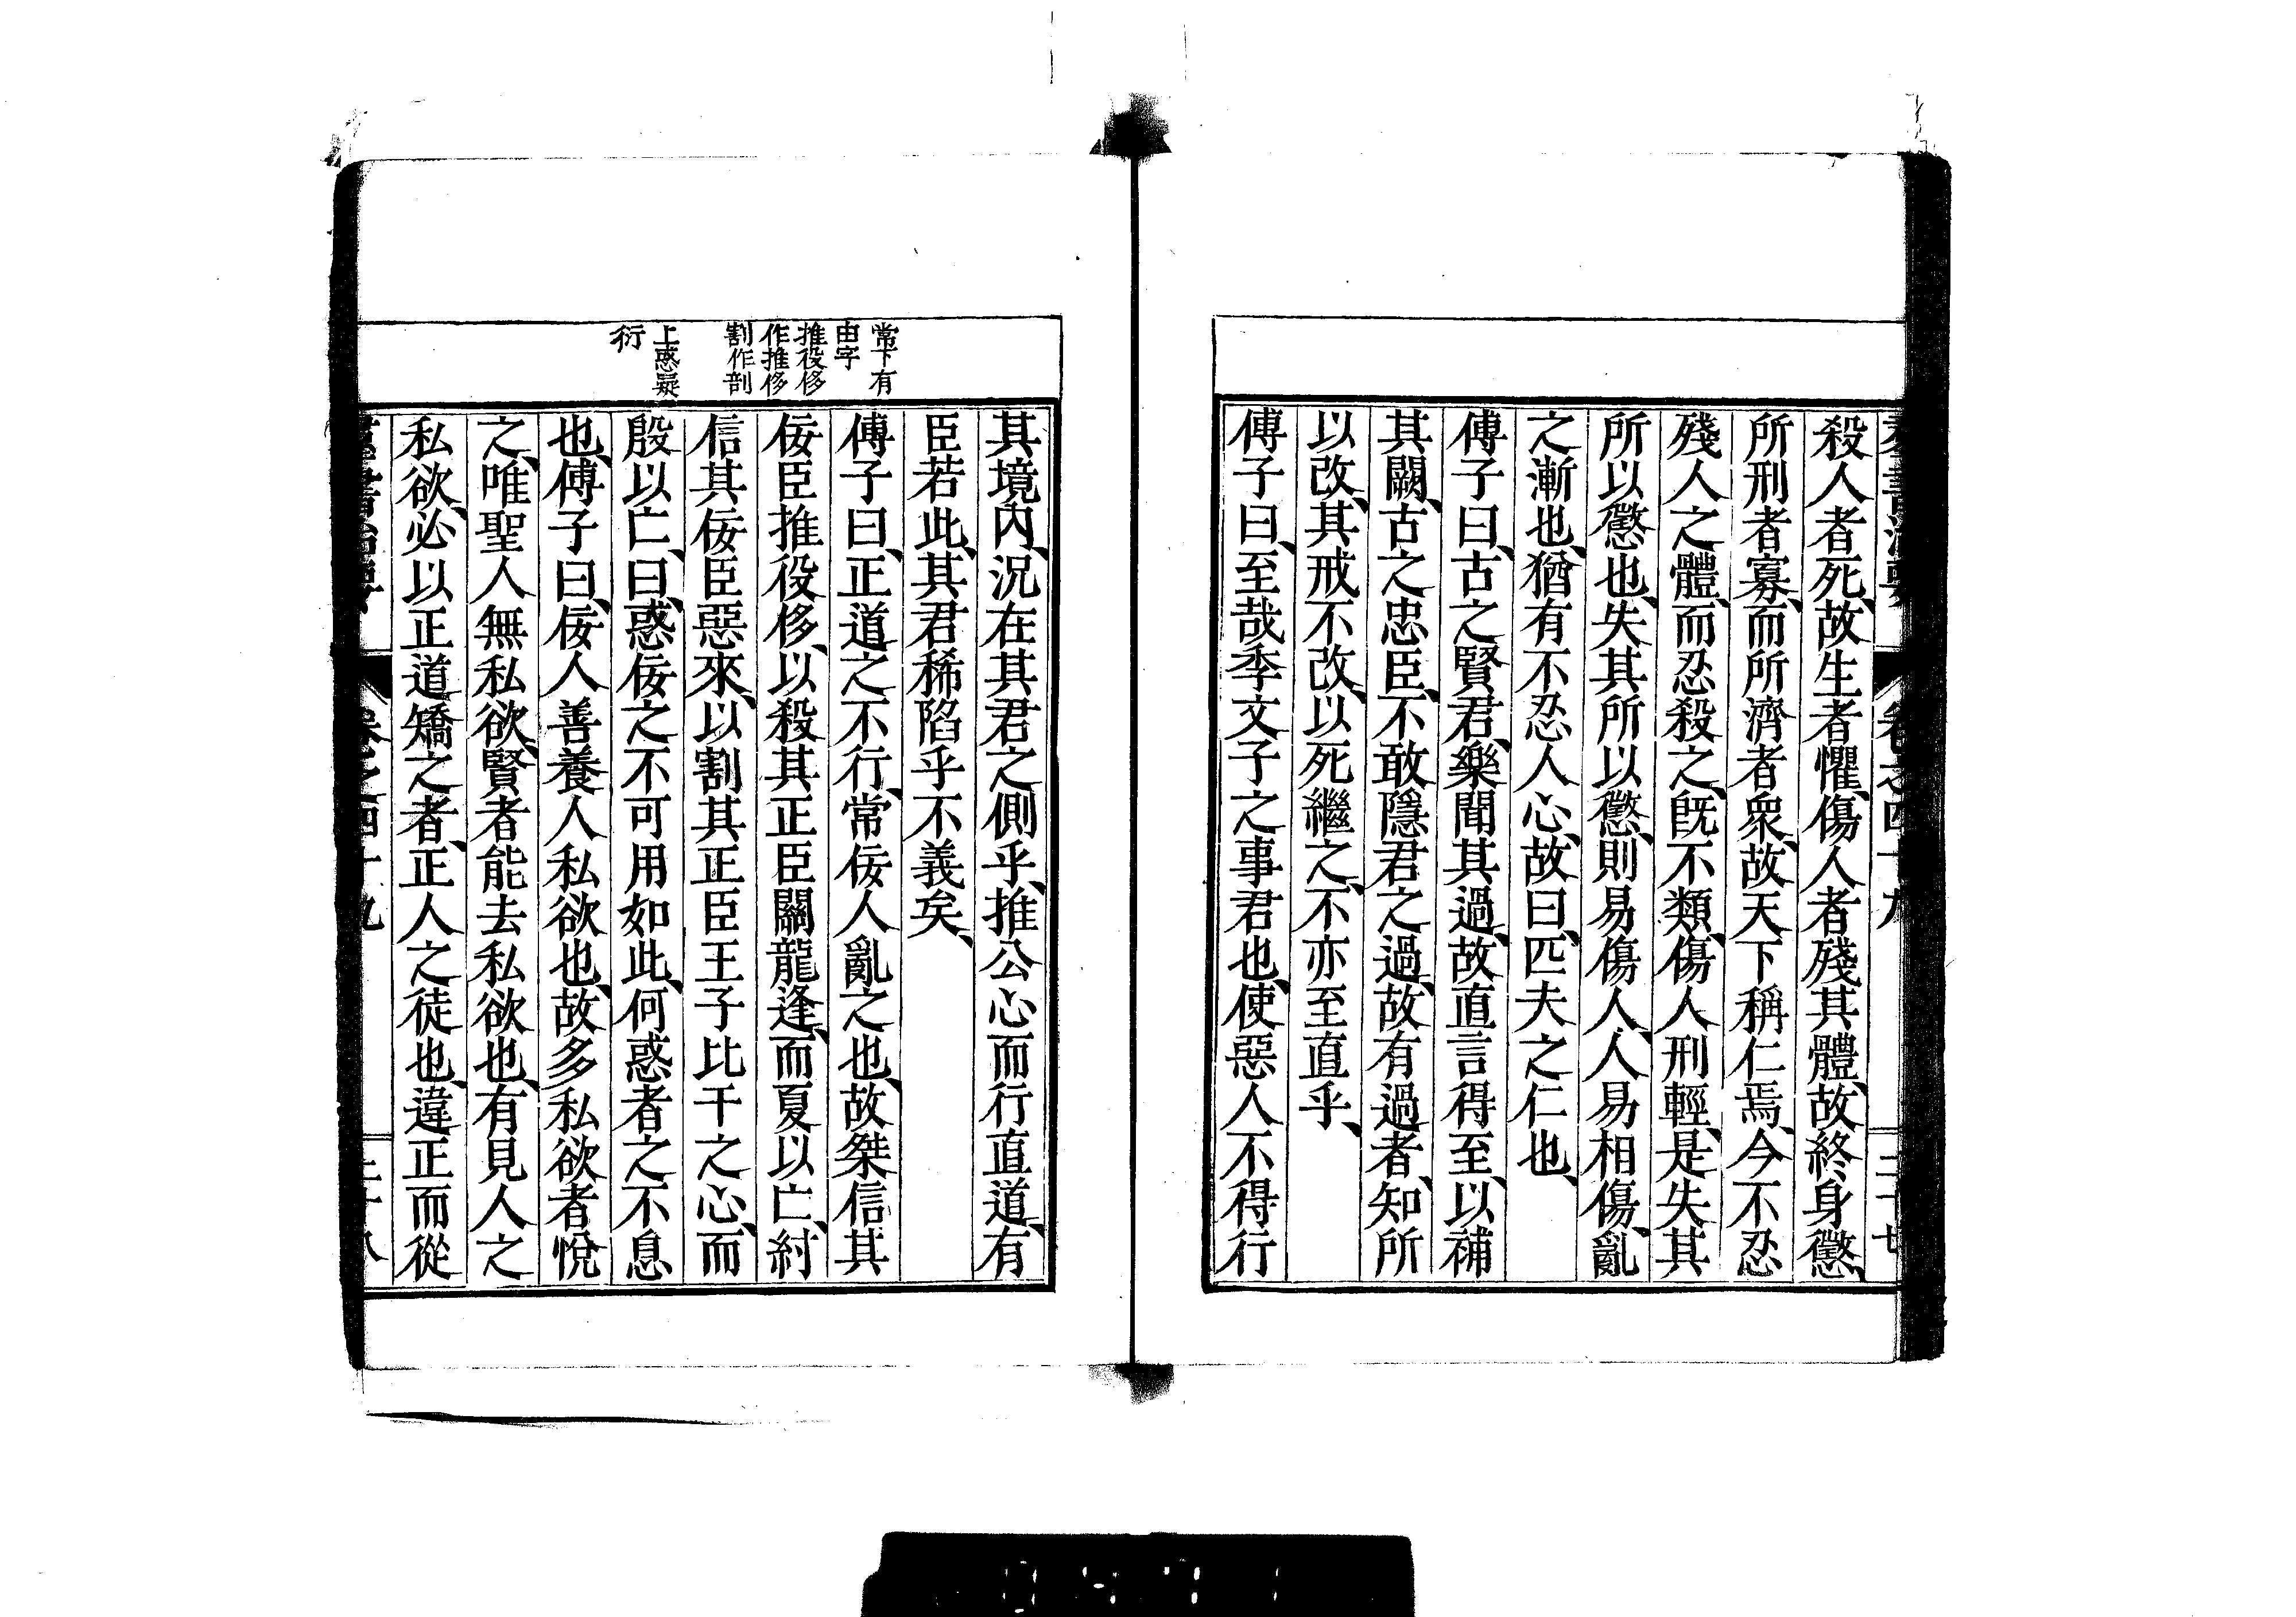 殺人者死、故生者懼、傷人者殘其體、故終身懲、
所刑者寡、而所濟者衆、故天下稱仁焉、今不忍
殘人之體、而忍殺之、旣不類、傷人刑輕、是失其
所以懲也、失其所以懲、則易傷人、人易相傷、亂
之漸也、猶有不忍人心、故曰、匹夫之仁也、
傅子曰、古之賢君、樂聞其過、故直言得至、以補
其闕、古之忠臣、不敢隱君之過、故有過者、知所
以改、其戒不改、以死繼之、不亦至直乎、
傅子曰、至哉季文子之事君也、使惡人不得行
常下有
由字
推役侈
作推侈
割作剖
上惑疑
衍
其境內、況在其君之側乎、推公心而行直道、有
臣若此、其君稀陷乎不義矣、
傅子曰、正道之不行、常佞人亂之也、故桀信其
佞臣推役侈、以殺其正臣關龍逢、而夏以亡、紂
信其佞臣惡來、以割其正臣王子比干之心、而
殷以亡、曰、惑佞之不可用如此、何惑者之不息
也、傅子曰、佞人善養人私欲也、故多私欲者悅
之、唯聖人無私欲、賢者能去私欲也、有見人之
私欲、必以正道矯之者、正人之徒也、違正而從
卷之四十九